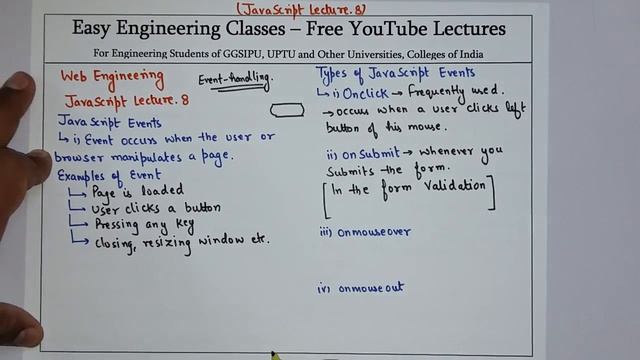 (JavaScript Lecture.8)
Easy Engineering Classes – Free YouTube Lectures
For Engineering Students of GGSIPU, UPTU and Other Universities, Colleges of India
Web Engineering
Event-handling.
JavaScript Lecture.8
JavaScript Events
↳ i) Event occurs when the user or
browser manipulates a page.
Examples of Event
↳ Page is loaded
↳ User clicks a button
↳ Pressing any key
↳ closing, resizing window etc.
Types of JavaScript Events
↳ i) Onclick → frequently used.
→ occurs when a user clicks left
button of his mouse.
ii) onSubmit → whenever you
Submits the form.
[In the form Validation]
iii) onmouseover
iv) onmouseout